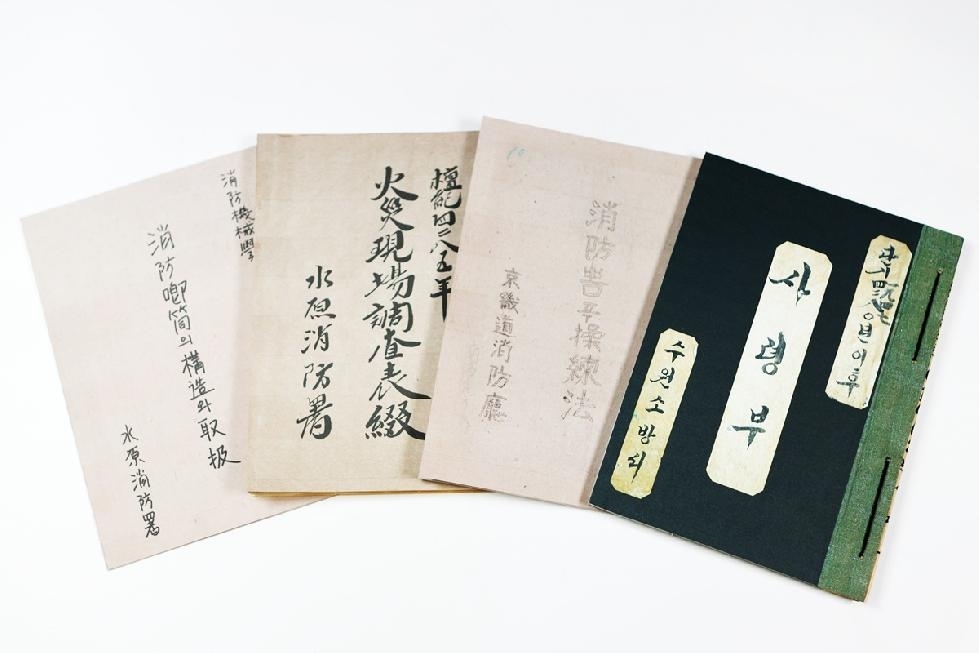 消防機械學
消防喞筒의 構造와 取扱
水原消防署
檀紀四二八五年
火災現場調査表綴
水原消防署
消防署手操練法
京畿道消防廳
년이후
사령부
수원소방서